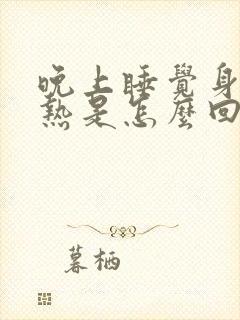 晚上睡覺身
熱是怎麼回
暮栖